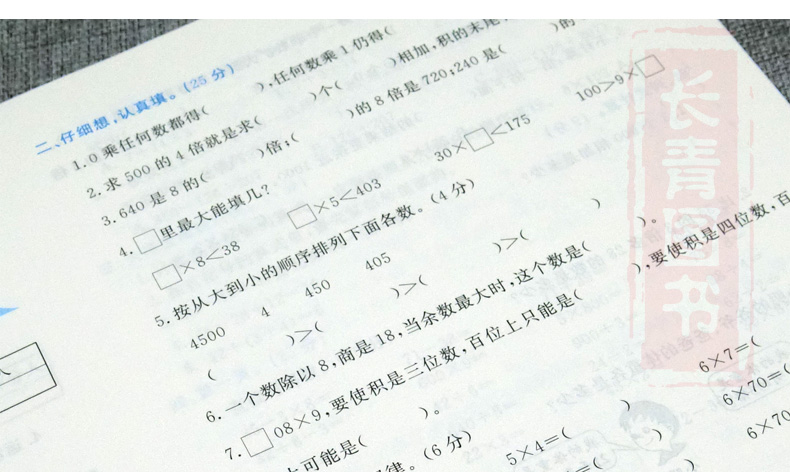 二、仔细想,认真填。(25分)
1. 0乘任何数都得(  ),任何数乘1仍得(
2. 求500的4倍就是求(  )个(  )相加,积的末尾
3. 640是8的(  )倍;(  )的8倍是720;240是(  )的
4. □里最大能填几?
□×8<38 □×5<403 30×□<175 100>9×□
5. 按从大到小的顺序排列下面各数。(4分)
4500 4 450 405
(  )>(  )>(  )>(  )
6. 一个数除以8,商是18,当余数最大时,这个数是(  )。
7. □08×9,要使积是三位数,百位上只能是(  ),要使积是四位数,百
可能是(  )。
律。(6分)
5×4=(  ) 6×7=(
=(  ) 6×70=(
6×70
长青图书